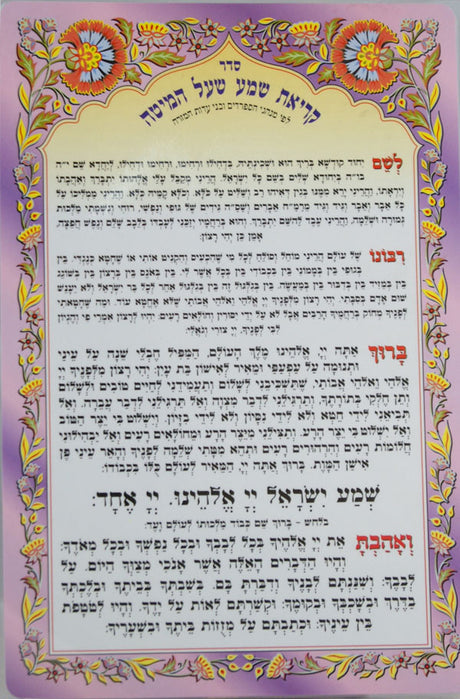 סדר
קריאת שמע שעל המיטה
לפי מנהגי הספרדים ובני עדות המזרח
לְשֵׁם יחוד קודשא בריך הוא ושכינתיה, בדחילו ורחימו, ורחימו ודחילו, ליחדא שם י״ה
בו״ה ביחודא שלים בשם כל ישראל. הריני מקבל עלי אלהותו יתברך ואהבתו
ויראתו. והריני ירא ממנו בגין דאיהו רב ושליט על כלא, וכלא קמיה כלא. והריני ממליכו על
כל אבר ואבר וגיד וגיד מרמ״ח אברים ושס״ה גידים של גופי ונפשי, רוחי ונשמתי מלכות
גמורה ושלמה. והריני עבד להשם יתברך. והוא ברחמיו יזכני לעבדו בלבב שלם ונפש חפצה.
אמן כן יהי רצון:
רִבּוֹנוֹ של עולם הריני מוחל וסולח לכל מי שהכעיס והקניט אותי או שחטא כנגדי. בין
בגופי בין בממוני בין בכבודי בין בכל אשר לי. בין באנס בין ברצון בין בשוגג
בין במזיד בין בדבור בין במעשה. בין בגלגול זה בין בגלגול אחר לכל בר ישראל ולא יענש
שום אדם בסבתי. יהי רצון מלפניך יי אלהי ואלהי אבותי שלא אחטא עוד. ומה שחטאתי
לפניך מחוק ברחמיך הרבים אבל לא על ידי יסורין וחולאים רעים: יהיו לרצון אמרי פי והגיון
לבי לפניך, יי צורי וגואלי:
בָּרוּךְ אתה יי, אלהינו מלך העולם, המפיל חבלי שנה על עיני
ותנומה על עפעפי ומאיר לאישון בת עין. יהי רצון מלפניך יי
אלהי ואלהי אבותי, שתשכיבני לשלום ותעמידני לחיים טובים ולשלום
ותן חלקי בתורתך, ותרגילני לדבר מצוה ואל תרגילני לדבר עברה. ואל
תביאני לידי חטא ולא לידי נסיון ולא לידי בזיון. וישלוט בי יצר הטוב
ואל ישלוט בי יצר הרע. ותצילני מיצר הרע ומחולאים רעים ואל יבהילוני
חלומות רעים והרהורים רעים ותהא מטתי שלמה לפניך והאר עיני פן
אישן המות. ברוך אתה יי, המאיר לעולם כלו בכבודו:
שְׁמַע יִשְׂרָאֵל יְיָ אֱלֹהֵינוּ. יְיָ אֶחָד:
בלחש - ברוך שם כבוד מלכותו לעולם ועד:
וְאָהַבְתָּ את יי אלהיך בכל לבבך ובכל נפשך ובכל מאדך:
והיו הדברים האלה אשר אנכי מצוך היום. על
לבבך: ושננתם לבניך ודברת בם. בשבתך בביתך ובלכתך
בדרך ובשכבך ובקומך: וקשרתם לאות על ידך. והיו לטטפת
בין עיניך: וכתבתם על מזזות ביתך ובשעריך: